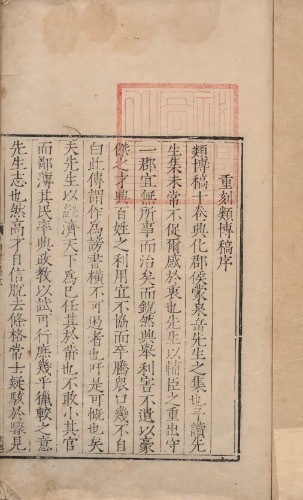 重刻類博稿序
類博稿十卷興化郡侯蒙泉岳先生之集也予讀先
生集未常不促爾感於衷也先生以輔臣之重出守
一郡宜無所事而治矣而銳然興舉利害不遺以豪
傑之才與百姓之利用宜不協而卒騰舆口幾不自
白此傳謂作為謗書橫不可遏者也吁是可慨也矣
夫先生以經濟天下為己任其於莆也不敢小其官
而鄙薄其民率典政教以試可行庶幾乎獵較之意
先生志也然高才自信脫去條格常士疑駭於驟見